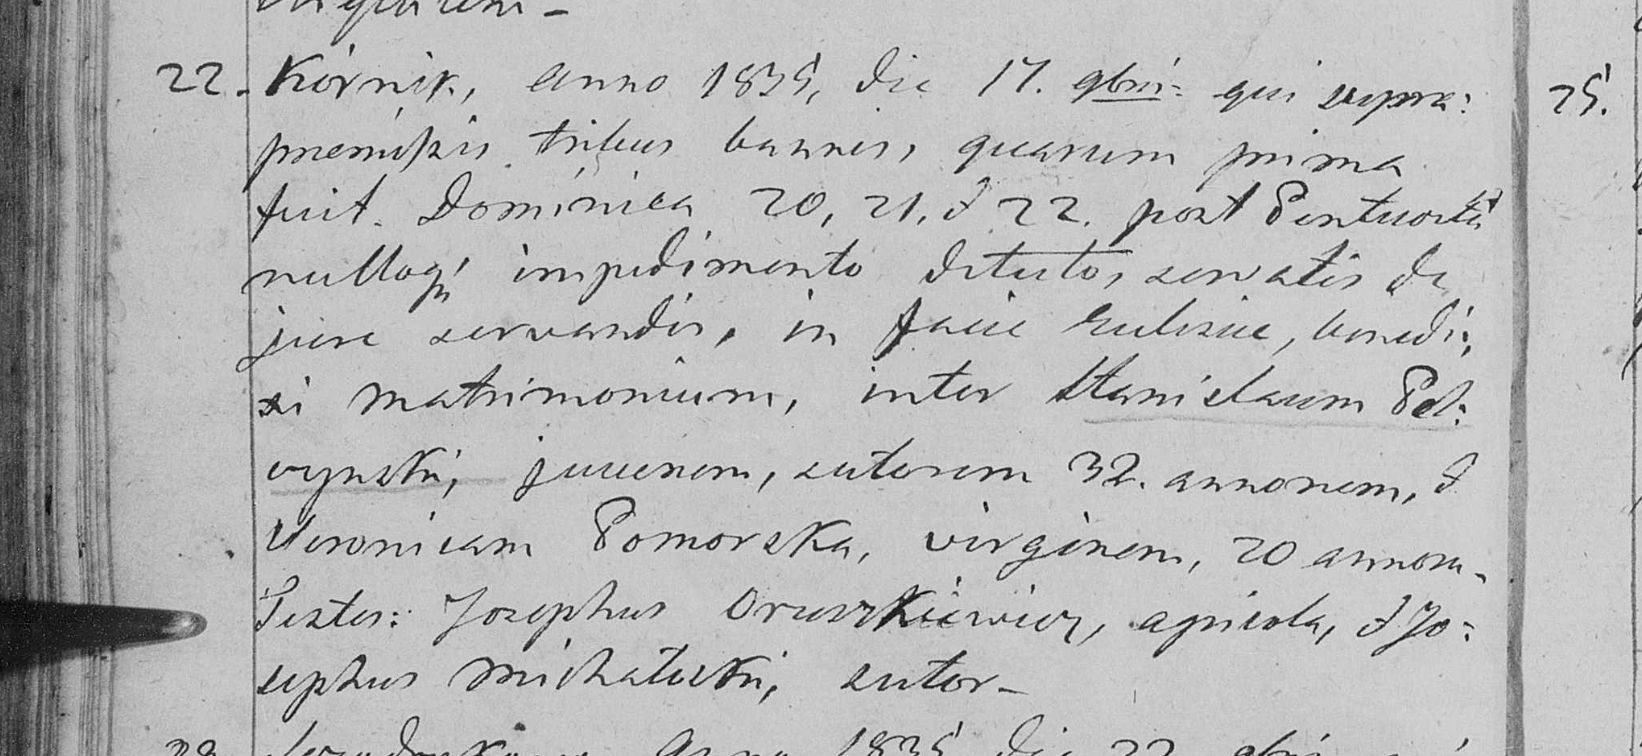 22. Kórnik, anno 1835, die 17. 9bris qui supra:
premissis tribus bannis, quarum prima
fuit Dominica 20, 21, & 22. post Pentecosté
nulloq; impedimento detecto, servatis de
jure servandis, in facie Ecclesiae, benedi:
xi matrimonium, inter Stanislaum Pel:
czynski, juvenem, sutorem 32. annorum, &
Veronicam Pomorska, virginem, 20 annoru-
Testes: Josephus Oruszkiewicz, agricola, & Jo:
sephus Michalucki, sutor-
anno 1835 die 22 9bris
25.